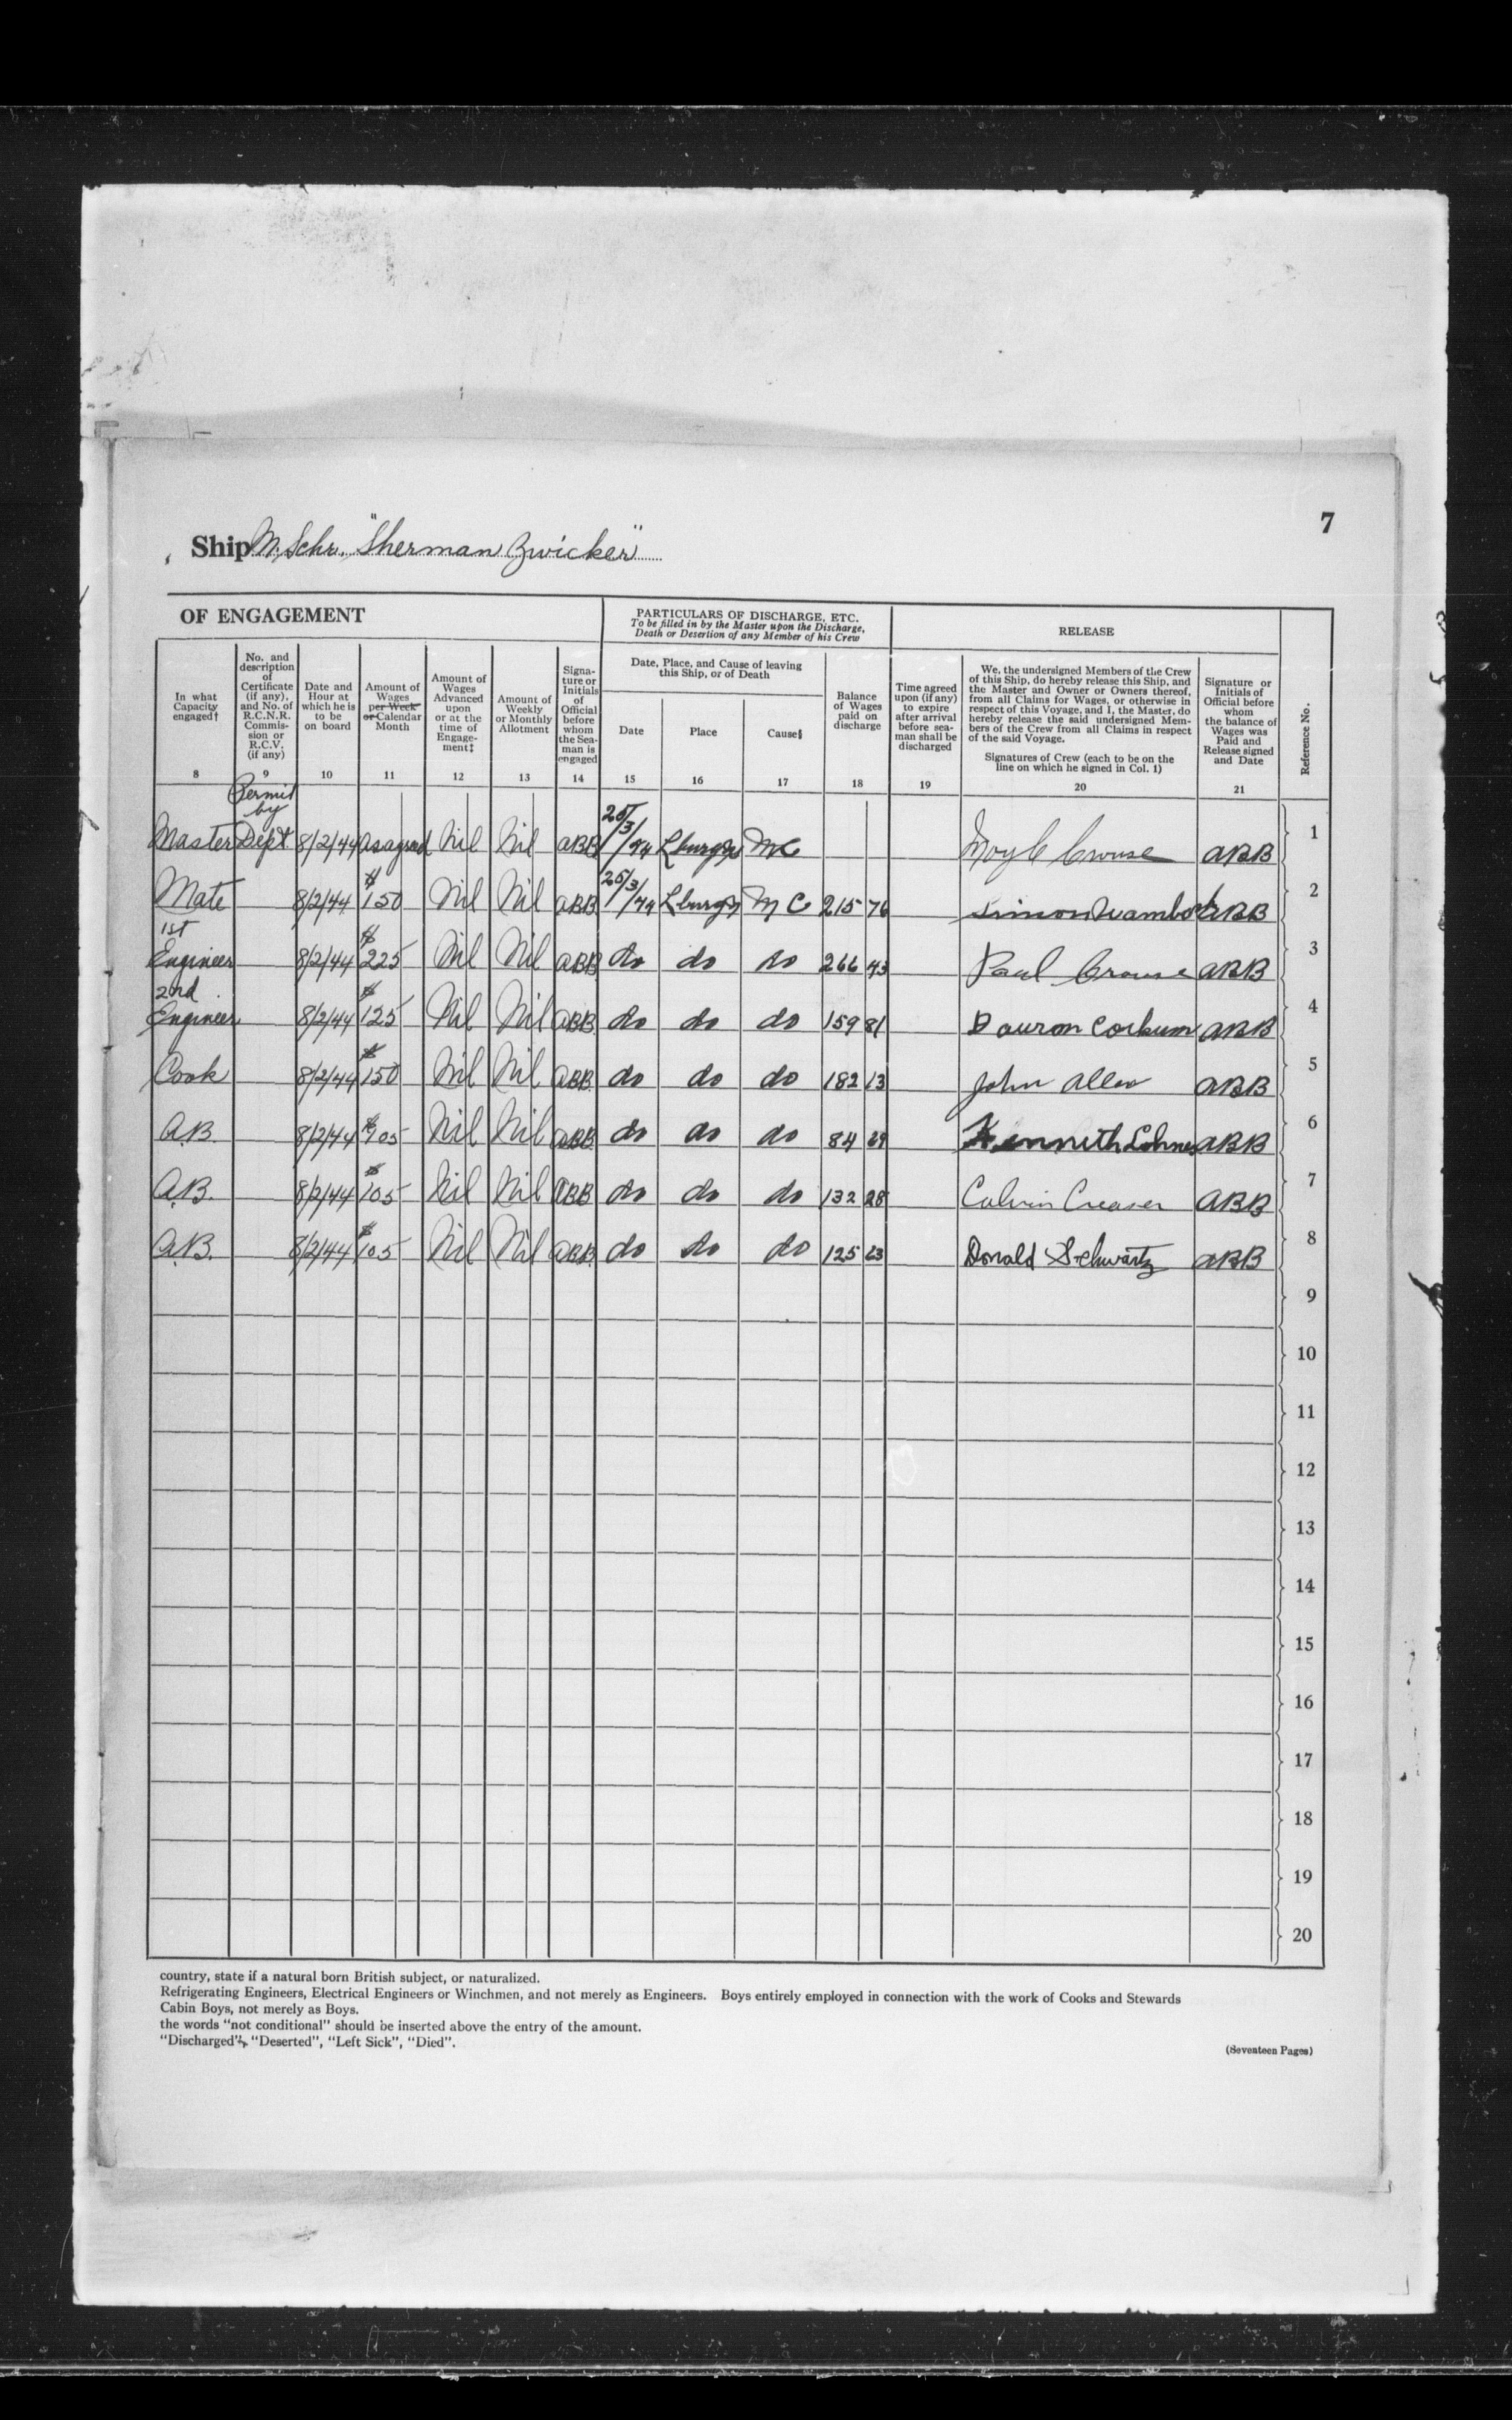 7
Ship M. Schr. "Sherman Zwicker"
OF ENGAGEMENT
PARTICULARS OF DISCHARGE, ETC.
To be filled in by the Master upon the Discharge,
Death or Desertion of any Member of his Crew
RELEASE
In what
Capacity
engaged†
8
No. and
description
of
Certificate
(if any),
and No. of
R.C.N.R.
Commis-
sion or
R.C.V.
(if any)
9
Date and
Hour at
which he is
to be
on board
10
Amount of
Wages
per Week
or Calendar
Month
11
Amount of
Wages
Advanced
upon
or at the
time of
Engage-
ment‡
12
Amount of
Weekly
or Monthly
Allotment
13
Signa-
ture or
Initials
of
Official
before
whom
the Sea-
man is
engaged
14
Date, Place, and Cause of leaving
this Ship, or of Death
Date
15
Place
16
Cause§
17
Balance
of Wages
paid on
discharge
18
Time agreed
upon (if any)
to expire
after arrival
before sea-
man shall be
discharged
19
We, the undersigned Members of the Crew
of this Ship, do hereby release this Ship, and
the Master and Owner or Owners thereof,
from all Claims for Wages, or otherwise in
respect of this Voyage, and I, the Master, do
hereby release the said undersigned Mem-
bers of the Crew from all Claims in respect
of the said Voyage.
Signatures of Crew (each to be on the
line on which he signed in Col. 1)
20
Signature or
Initials of
Official before
whom
the balance of
Wages was
Paid and
Release signed
and Date
21
Reference No.
Master Permit by Dept 8/2/44 as agreed Nil Nil ABB 25/3/44 L'burg MC Moyle Crouse ABB 1
Mate 8/2/44 $150 Nil Nil ABB 25/3/44 L'burg MC 215 76 Simon Wambolt ABB 2
1st Engineer 8/2/44 $225 Nil Nil ABB do do do 266 43 Paul Crouse ABB 3
2nd Engineer 8/2/44 $125 Nil Nil ABB do do do 159 81 Corkum ABB 4
Cook 8/2/44 $150 Nil Nil ABB do do do 182 13 John Allen ABB 5
A.B. 8/2/44 $105 Nil Nil ABB do do do 84 Kenneth Lohnes ABB 6
A.B. 8/2/44 $105 Nil Nil ABB do do do 132 28 Calvin Creaser ABB 7
A.B. 8/2/44 $105 Nil Nil ABB do do do 125 Donald Schwartz ABB 8
9
10
11
12
13
14
15
16
17
18
19
20
country, state if a natural born British subject, or naturalized.
Refrigerating Engineers, Electrical Engineers or Winchmen, and not merely as Engineers. Boys entirely employed in connection with the work of Cooks and Stewards
Cabin Boys, not merely as Boys.
the words "not conditional" should be inserted above the entry of the amount.
"Discharged", "Deserted", "Left Sick", "Died".
(Seventeen Pages)